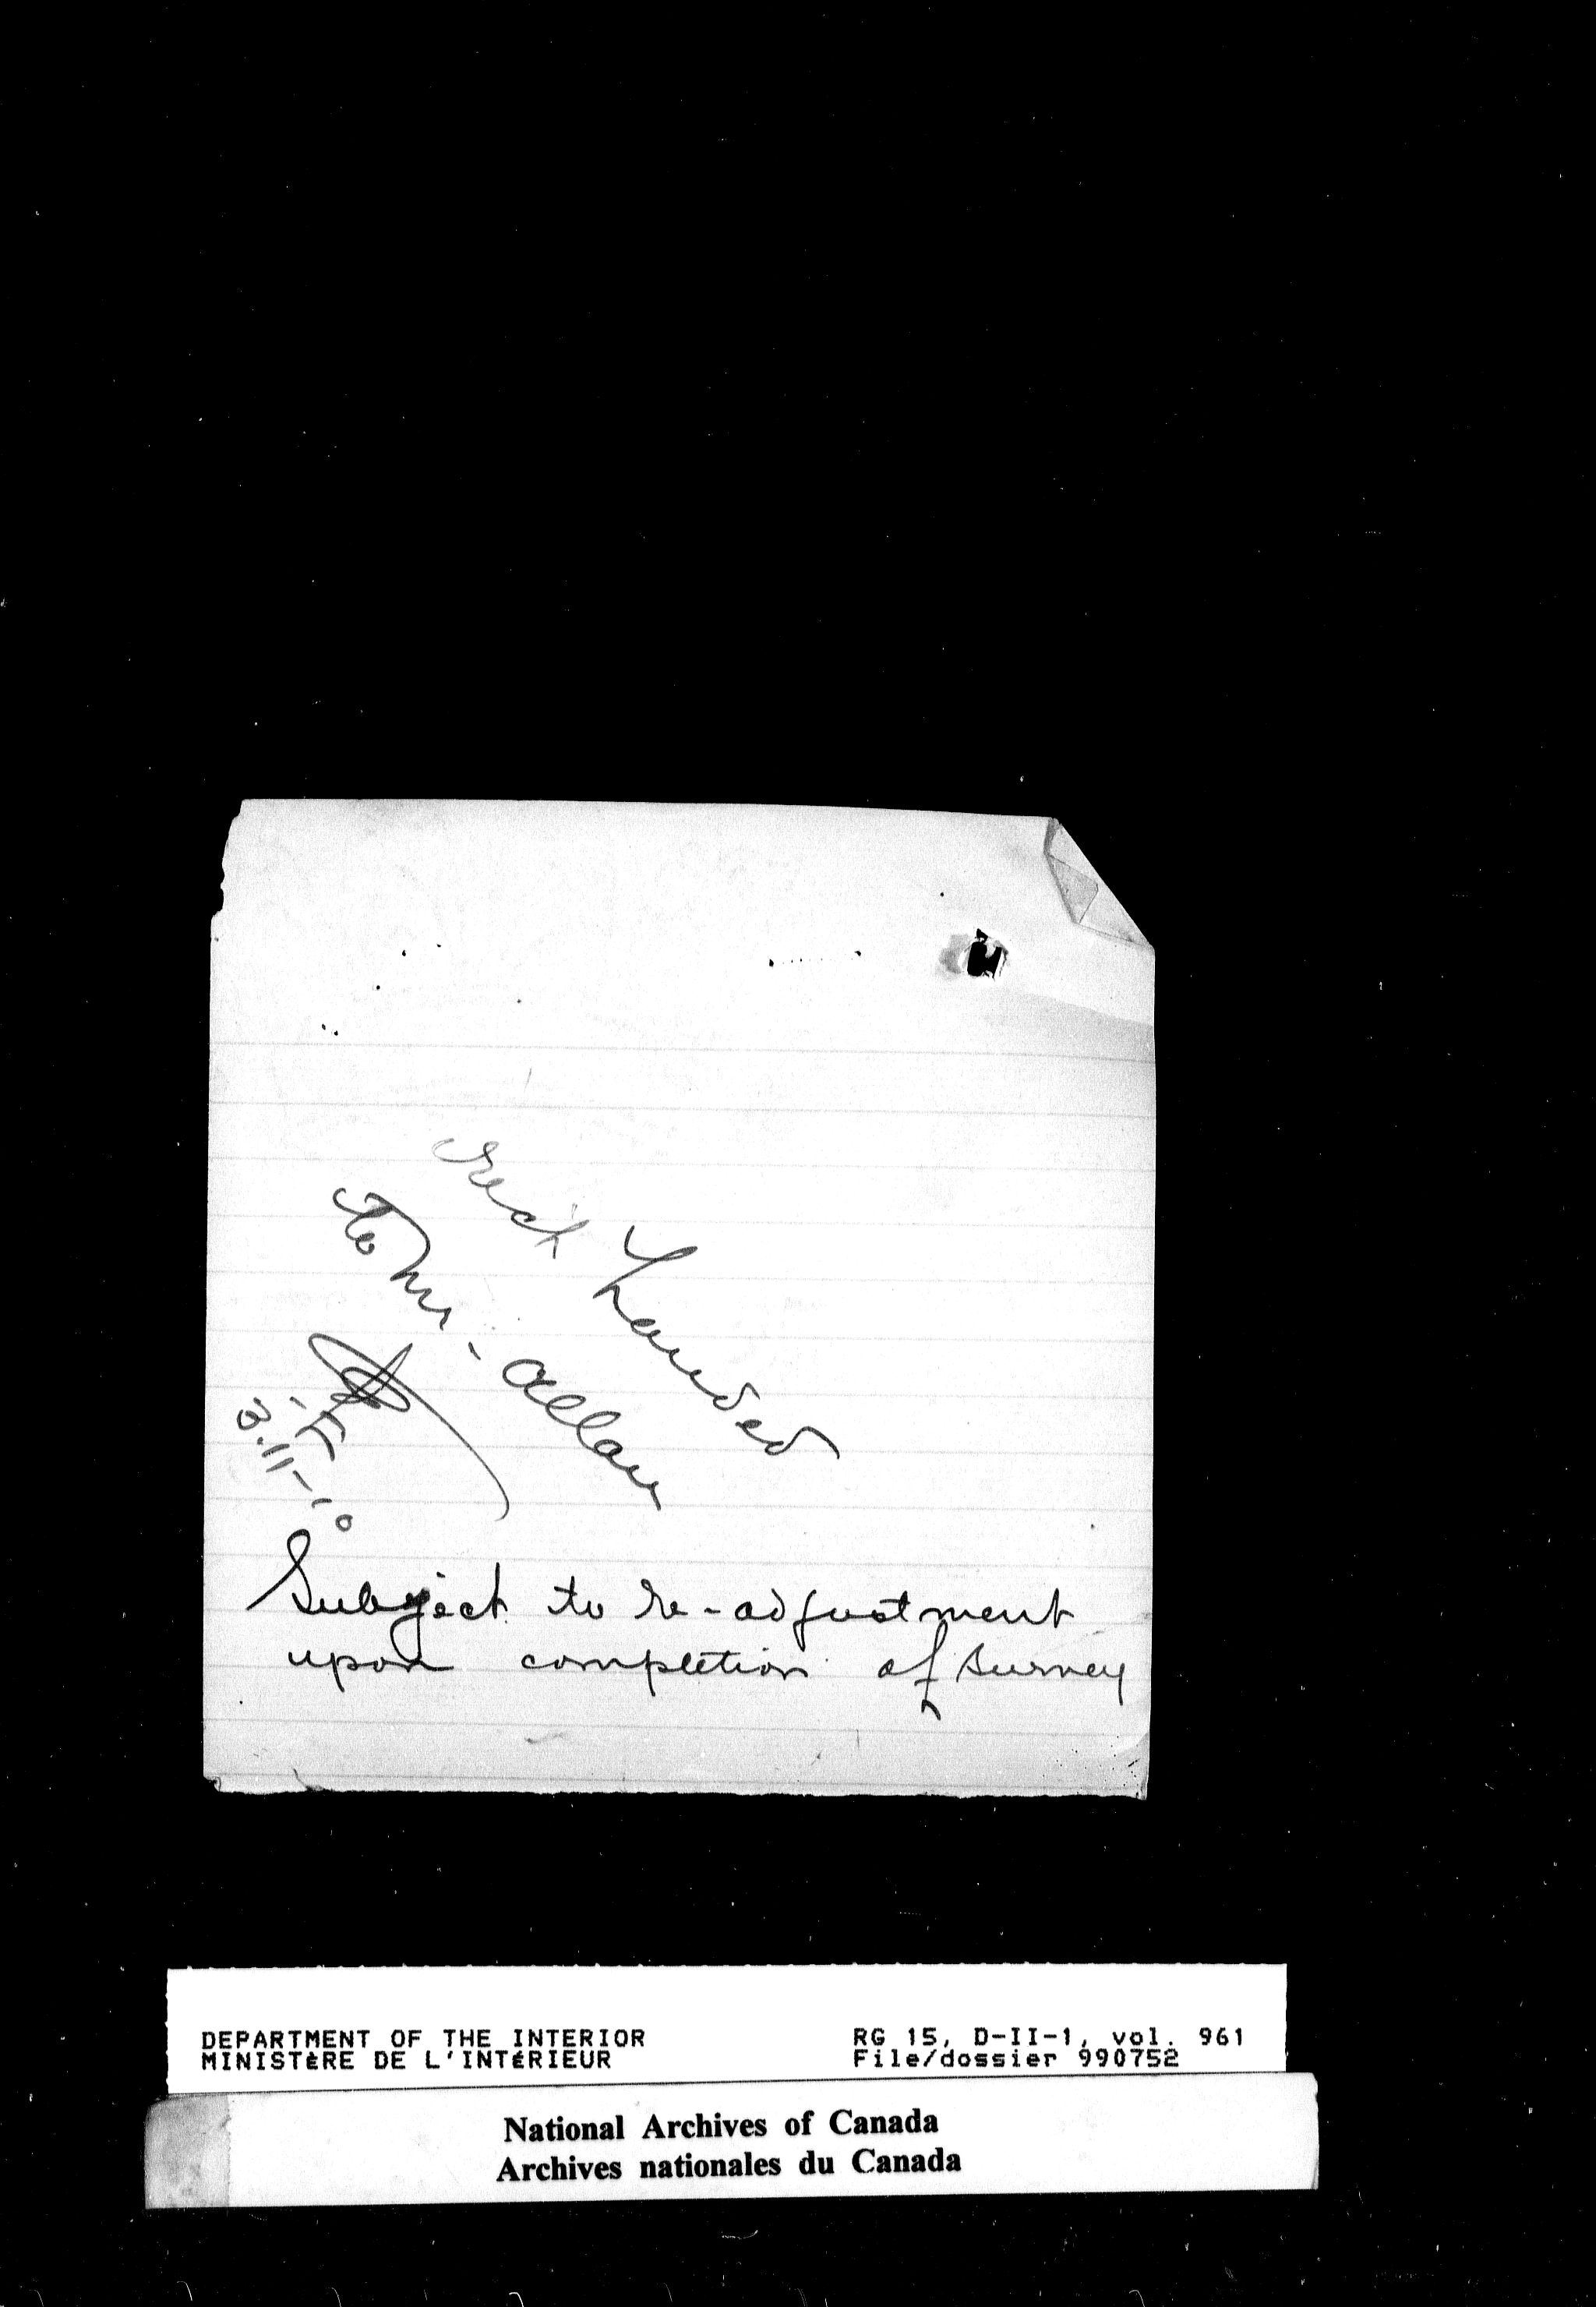 Rect handed
to Mr. Allan
3.11-10
Subject to re-adjustment
upon completion of survey
DEPARTMENT OF THE INTERIOR
MINISTÈRE DE L'INTÉRIEUR
RG 15, D-II-1, vol. 961
File/dossier 990752
National Archives of Canada
Archives nationales du Canada